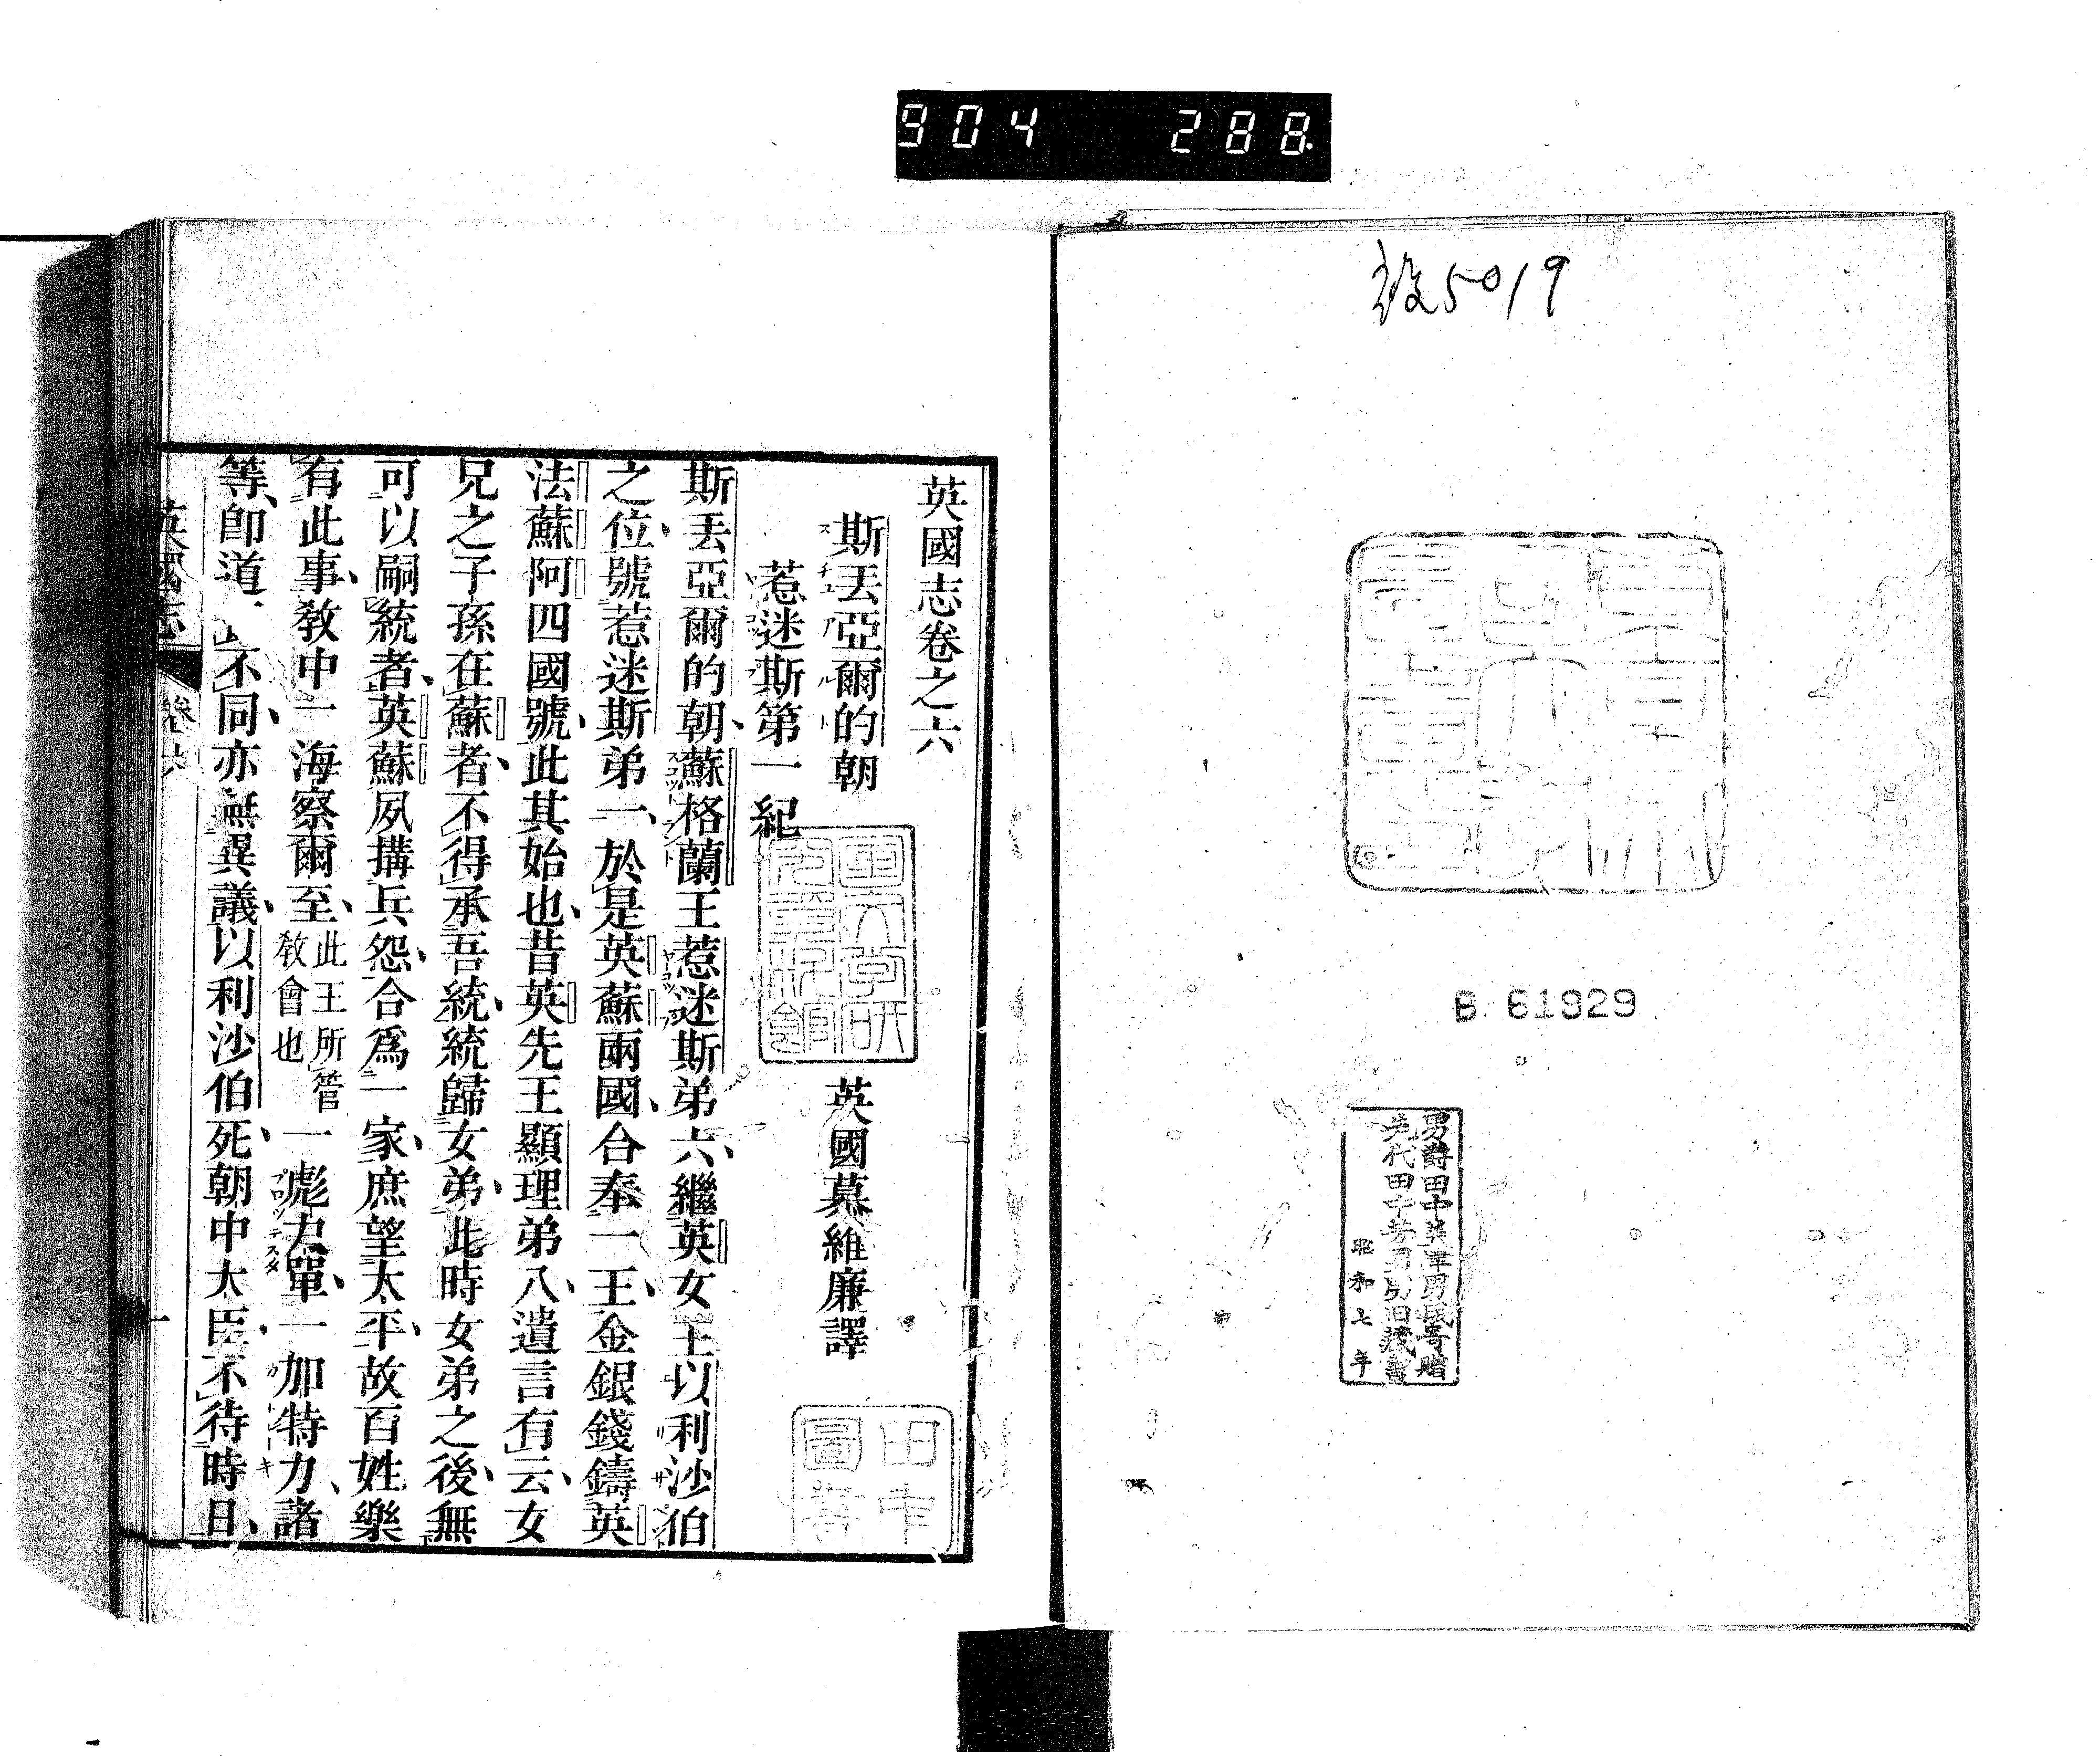 904 288
役5019
東京帝國大學圖書印
B 61929
男爵田中美津男氏寄贈
先代田中芳男男旧蔵書
昭和七年
英國志卷之六
斯丟亞爾的朝
英國慕維廉譯
惹迷斯第一紀
斯丟亞爾的朝、蘇格蘭王惹迷斯弟六、繼英女主以利沙伯
之位、號惹迷斯弟一、於是英蘇兩國、合奉一王、金銀錢鑄英
法蘇阿四國號、此其始也、昔英先王顯理弟八、遺言有云、女
兄之子孫在蘇者、不得承吾統、統歸女弟、此時女弟之後、無
可以嗣統者、英蘇夙搆兵怨、合爲一家、庶望太平、故百姓樂
有此事、敎中一海察爾至、此王所管敎會也一彪力單、一加特力、諸
等、卽道、不同、亦無異議、以利沙伯死、朝中大臣、不待時日、
英國志
卷六
一
田中
圖書